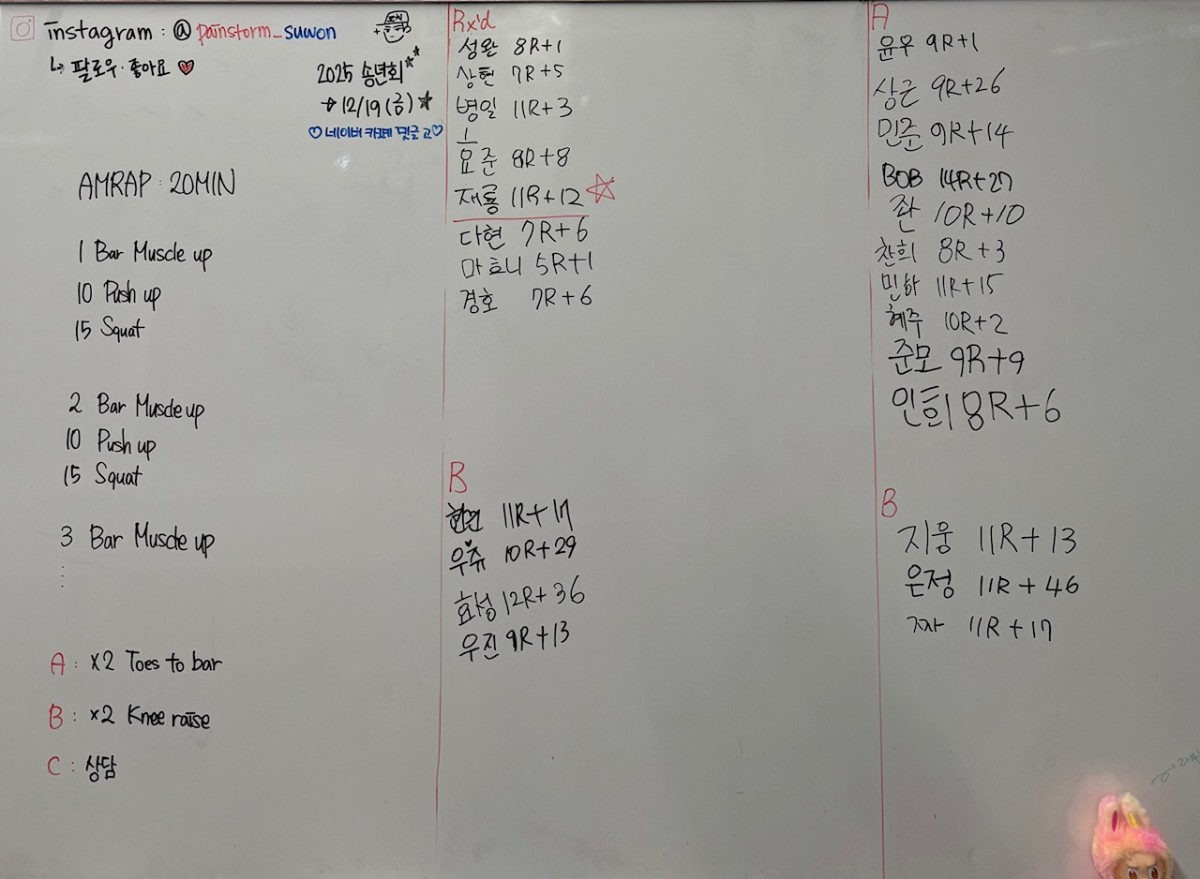 instagram : @painstorm_suwon
↳ 팔로우·좋아요 ♥
2025 송년회
→ 12/19(금)
♡네이버 카페 댓글 고♡
AMRAP : 20MIN
1 Bar Muscle up
10 Push up
15 Squat
2 Bar Muscle up
10 Push up
15 Squat
3 Bar Muscle up
A : x2 Toes to bar
B : x2 Knee raise
C : 상담
Rx'd
성완 8R+1
상현 7R+5
병일 11R+3
효준 8R+8
재룡 11R+12
다현 7R+6
마호니 5R+1
경호 7R+6
B
11R+17
우쥬 10R+29
효성 12R+36
우진 9R+13
A
윤우 9R+1
상근 9R+26
민준 9R+14
BOB 14R+27
좌 10R+10
찬희 8R+3
민하 11R+15
혜주 10R+2
준모 9R+9
인희 8R+6
B
지웅 11R+13
은정 11R+46
11R+17